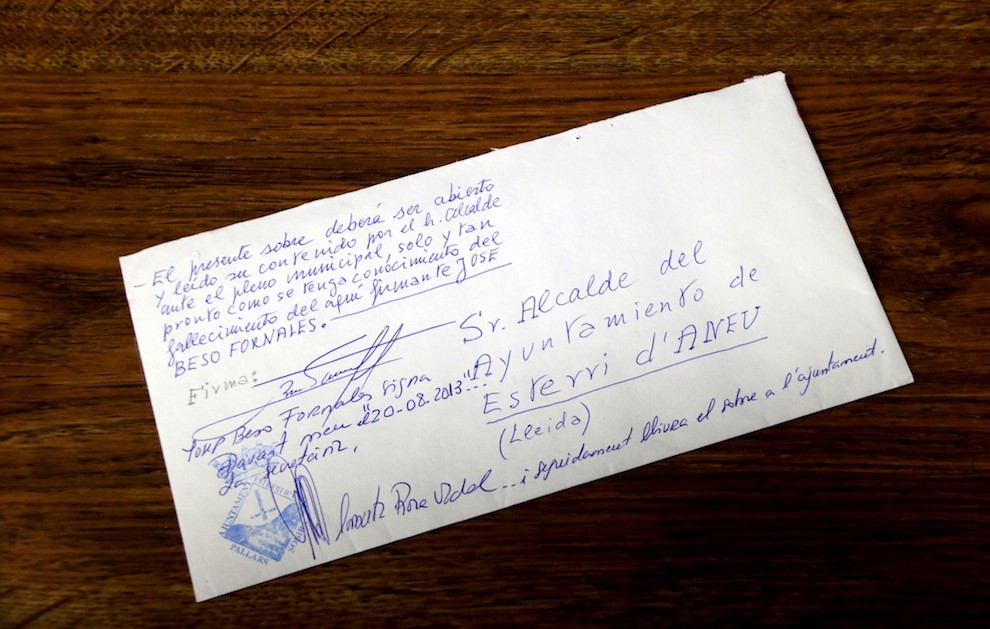 - El presente sobre deberá ser abierto
y leído su contenido por el h. Alcalde
ante el pleno municipal, solo y tan
pronto como se tenga conocimiento del
fallecimiento del aquí firmante JOSE
BESO FORNALES.
Firma:
Sr. Alcalde del
Ayuntamiento de
Esterri d'ANEU
(Lleida)
Josep Beso Fornales signa
Davant meu el "20-08-2013"...
La secretària,
Rosa Vidal ... i seguidament lliura el sobre a l'ajuntament.
AJUNTAMENT
PALLARS